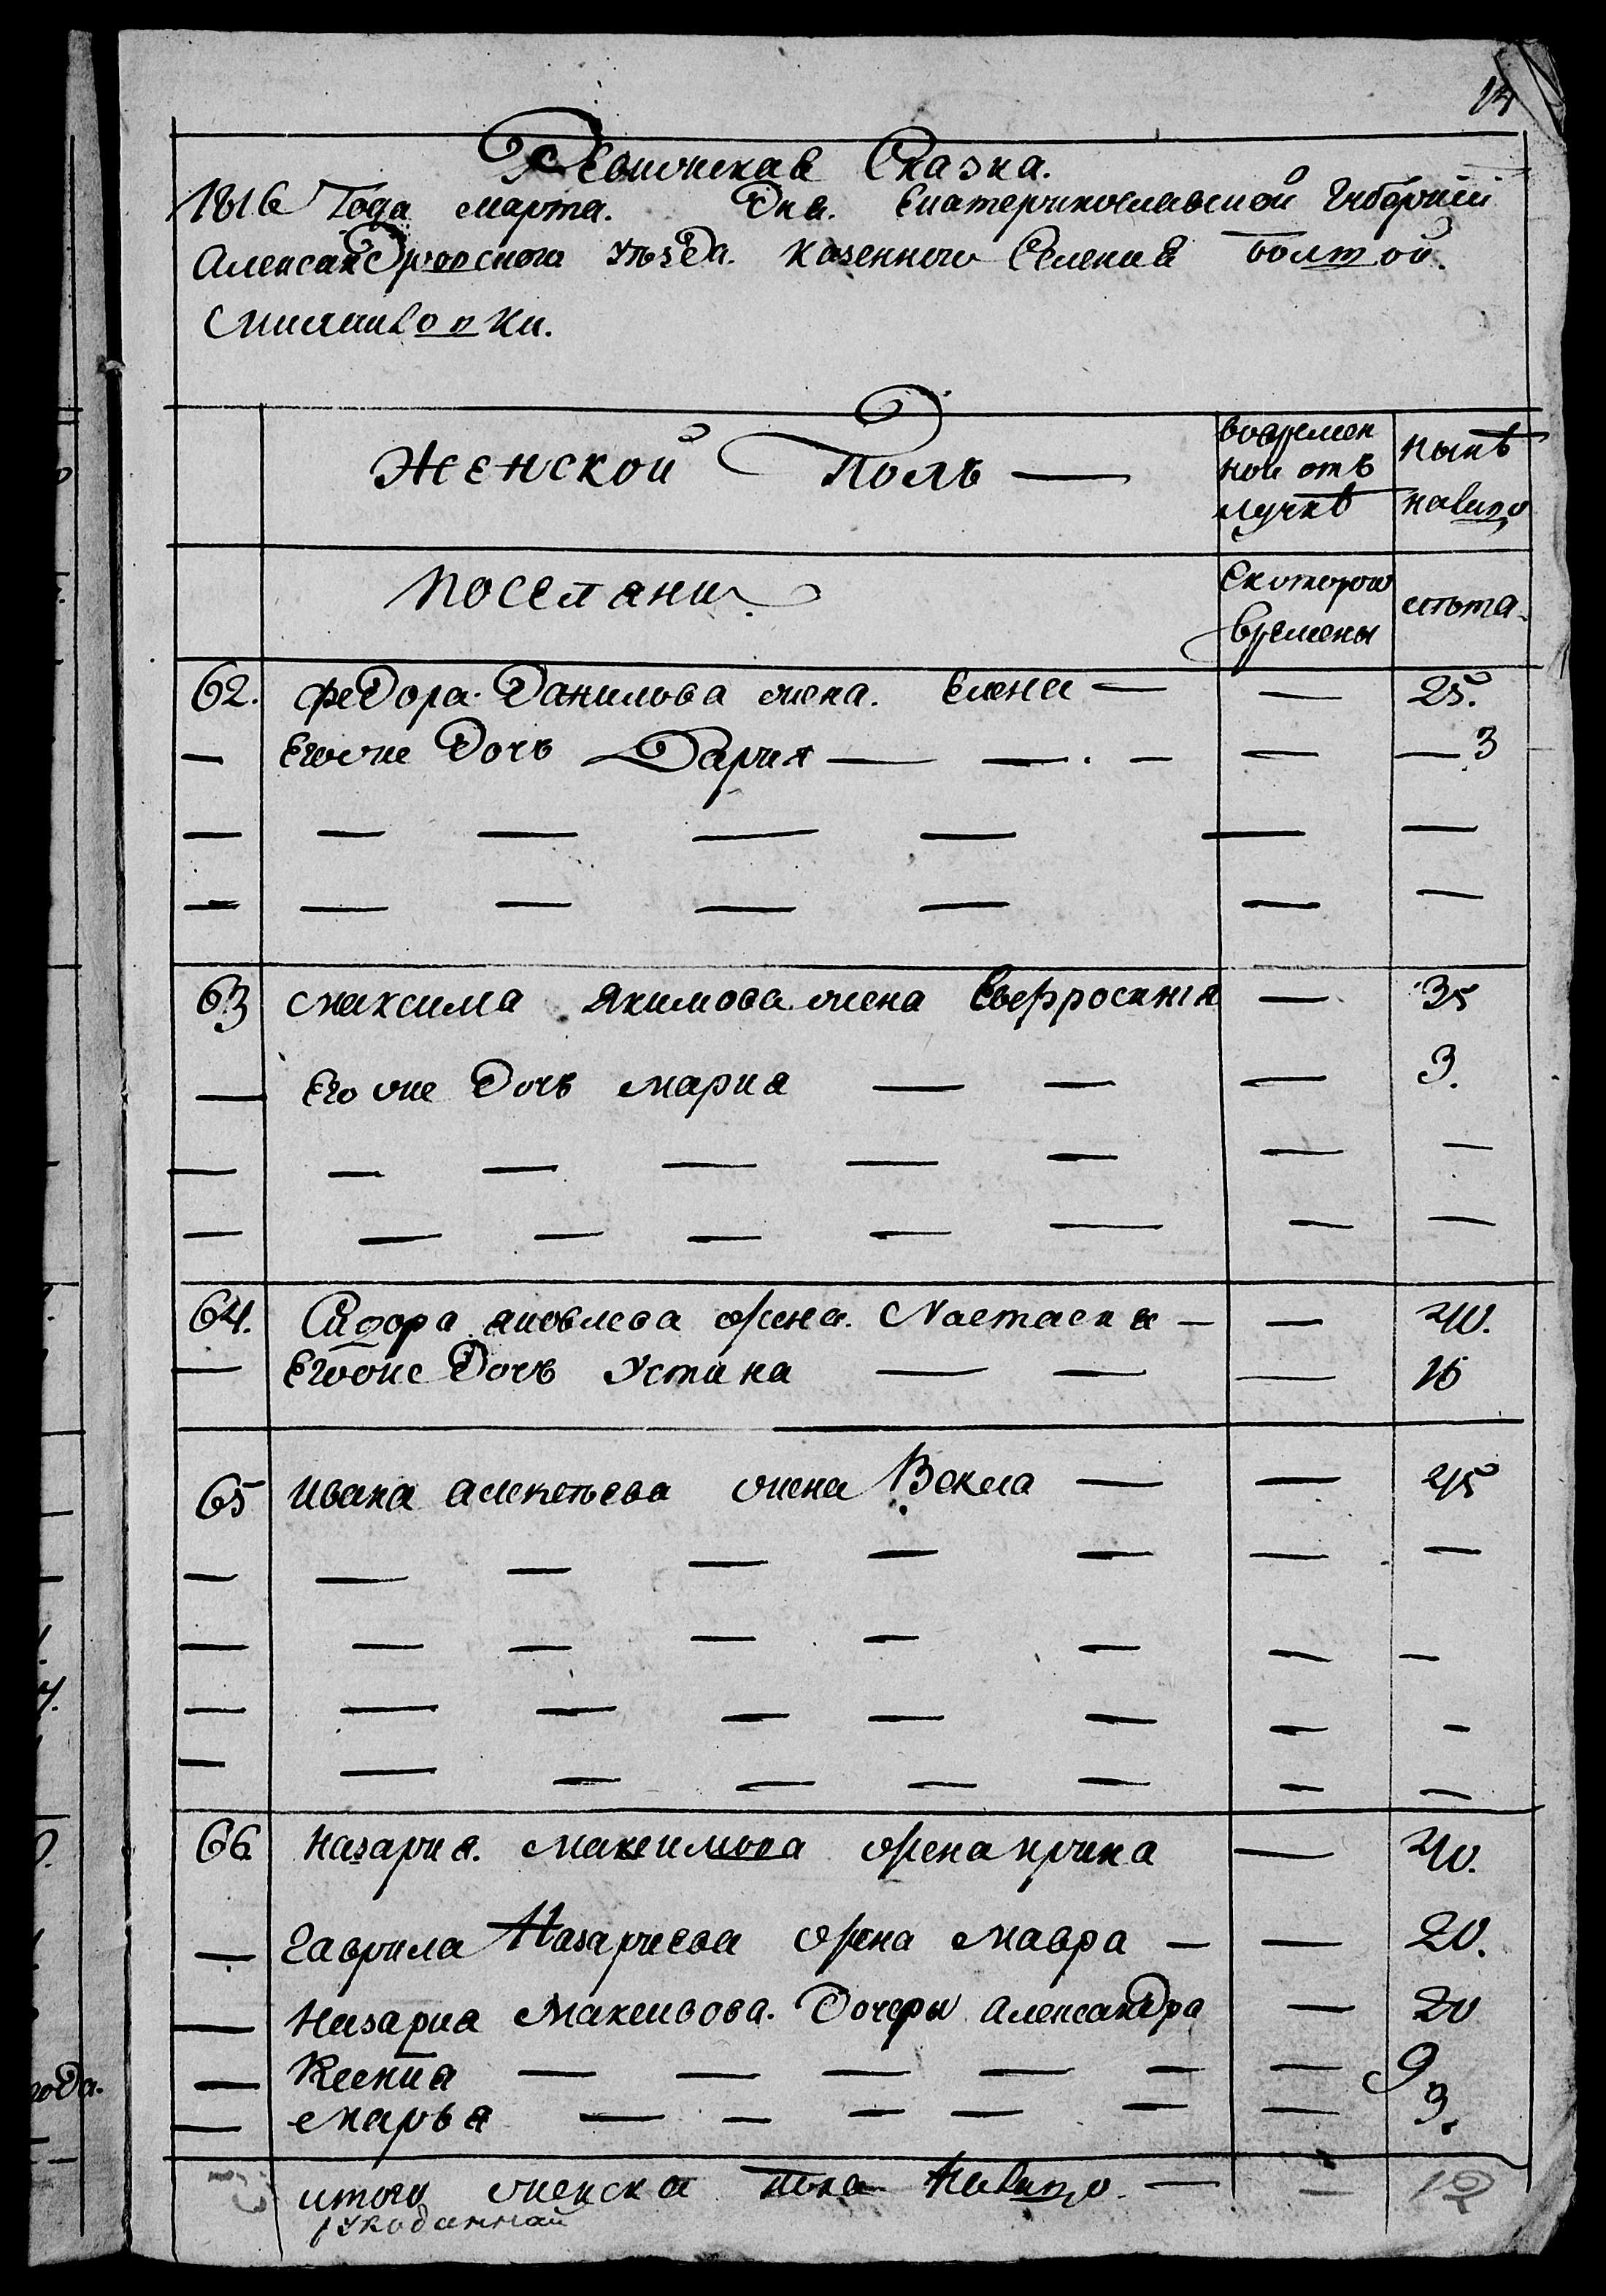 14
Ревижская Сказка.
1816 Года марта. Дня. Екатеринославской Губернїи
Александровского уѣзда. казенного Селения толстой.
женской полъ —
вовремен нынѣ
ной отъ
лучкѣ налицо
поселяни
Скоторого лѣта.
времены
62. федора Данилова жена. Елена — — 25.
— Егоже Дочь Дария — — . — — — 3
— — — — — — —
— — — — — — —
63 максима якимова жена Евфросиния — 35
— Его же Дочь мария — — — 3.
— — — — — — — —
— — — — — — — —
64. Сидора яковлева жена. Настасия — — 40.
— Егоже Дочь Устина — — — 16
65 ивана алексѣева жена Векла — — 45
— — — — — — — —
— — — — — — — —
— — — — — — — —
— — — — — — — —
66 назария. максимова жена ирина — 40.
— гаврила Назариева жена мавра — — 20.
— Назария Максивова. Дочеры александра — 20
— Ксения — — — — — — 9
— марья — — — — — — 3.
итого женска пола Налицо. — — 12